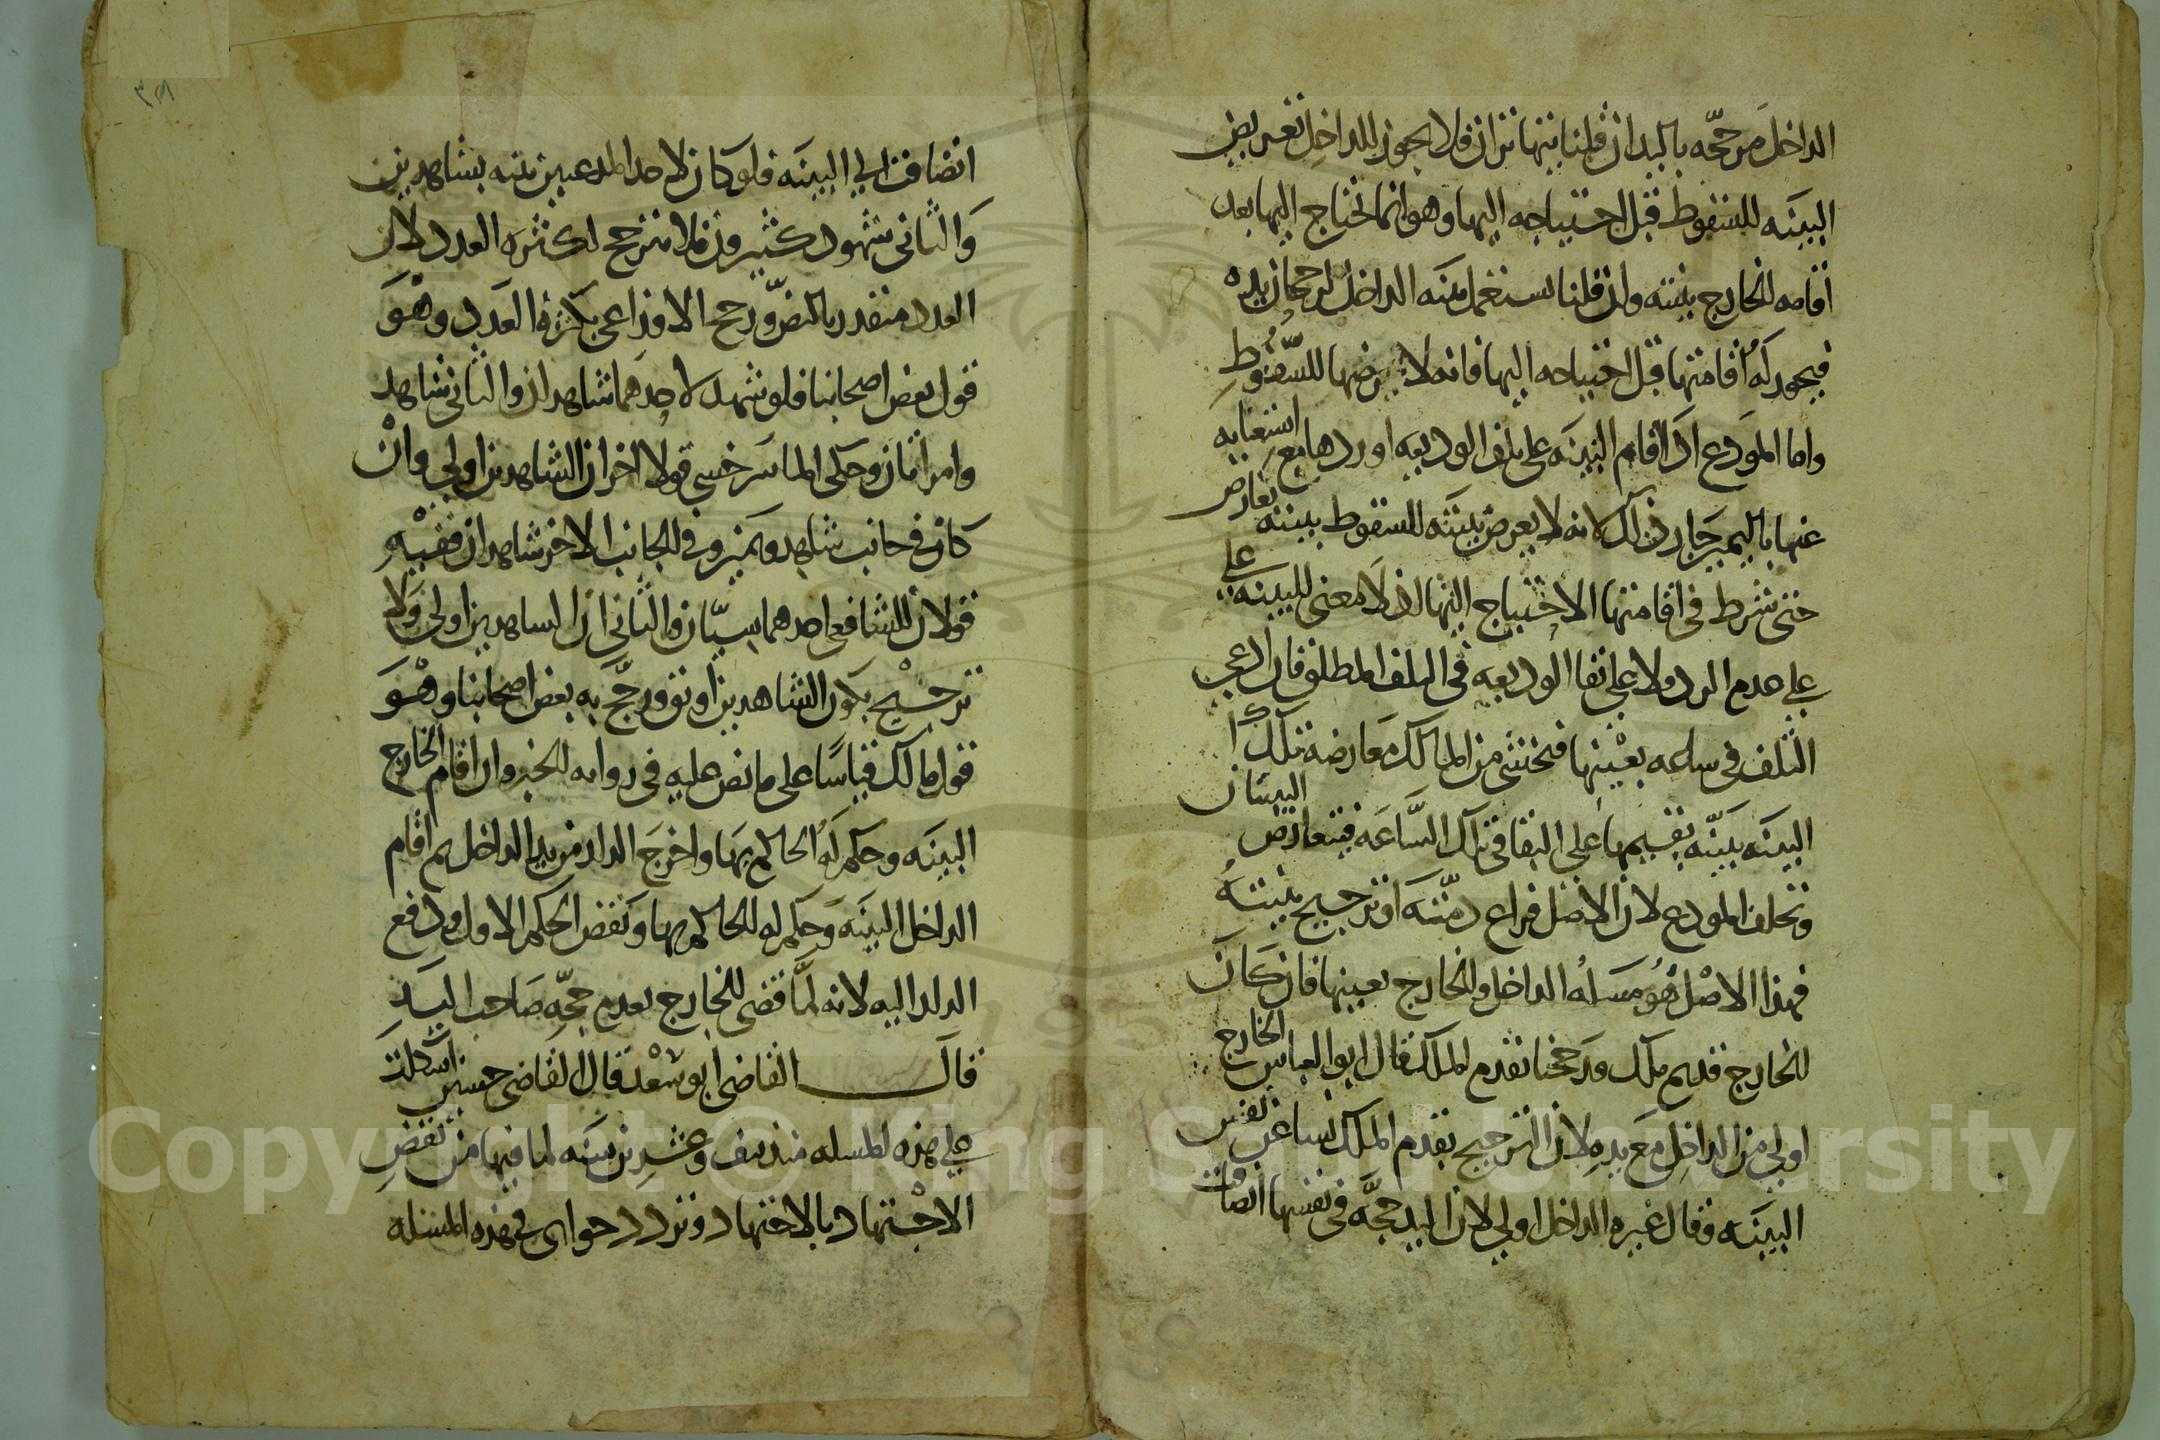 الداخل مرجحه باليد ان قلنا بينهما تران فلا يجوز للداخل تعريض
البينه للسقوط قبل احتياجه اليها وهو انما يحتاج اليها بعد
اقامه الخارج بينته وان قلنا نستعمل بينه الداخل لرجحان يده
فيجوز له اقامتها قبل احتياجه اليها فانه لا يعرضها للسقوط
واما المودع اذا اقام البينه على تلف الوديعه او ردها مع استغنايه
عنها باليمين جاز ذلك لانه لا يعرض بينته للسقوط ببينه تعارض
حتى شرط في اقامتها الاحتياج اليها اذ لا معنى للبينه على
على عدم الرد ولا على بقا الوديعه في التلف المطلق فان ادعى
التلف في ساعه بعينها فيخشى من المالك معارضه تلك
البينه ببينه يقيمها على البقا في تلك الساعه فيتعارض البينتان
ويحلف المودع لان الاصل فراغ ذمته او ترجيح بينته
فهذا الاصل هو مسله الداخل والخارج بعينها فان كان
للخارج قديم ملك ورجحنا بقدم الملك فقال ابو العباس الخارج
اولى من الداخل مع يده لان الترجيح بقدم الملك نشا عن نفس
البينه وقال غيره الداخل اولى لان اليد حجه في نفسها انضافت
انضافت الى البينه فلو كان لاحد المدعيين بينه بشاهدين
والثاني شهود كثيرون فلا نترجح لكثره العدد لان
العدد متقدر بالنص ورجح الاوزاعي بكثرة العدد وهو
قول بعض اصحابنا فلو شهد لاحدهما شاهدان والثاني شاهد
وامراتان وحكى الماسرخسي قولا اخر ان الشاهدين اولى وان
كان في جانب شاهد ويمين وفي الجانب الاخر شاهدان ففيه
قولان للشافعي احدهما سيان والثاني ان الشاهدين اولى ولا
ترجيح بكون الشاهدين اوثق ورجح به بعض اصحابنا وهو
قول مالك قياسا على ما نص عليه في روايه الخبر وان اقام الخارج
البينه وحكم له الحاكم بها واخرج الدار من يد الداخل ثم اقام
الداخل البينه وحكم له الحاكم بها ونقض الحكم الاول ودفع
الدار اليه لانه لما قضى للخارج بعدم حجه صاحب اليد
قال القاضي ابو سعد قال القاضي حسين اشكلت
على هذه المسله منذ نيف وعشرين سنه لما فيها من نقض
الاجتهاد بالاجتهاد وتردد جوابي في هذه المسئله
٣٨
Copyright © King Saud University
1957